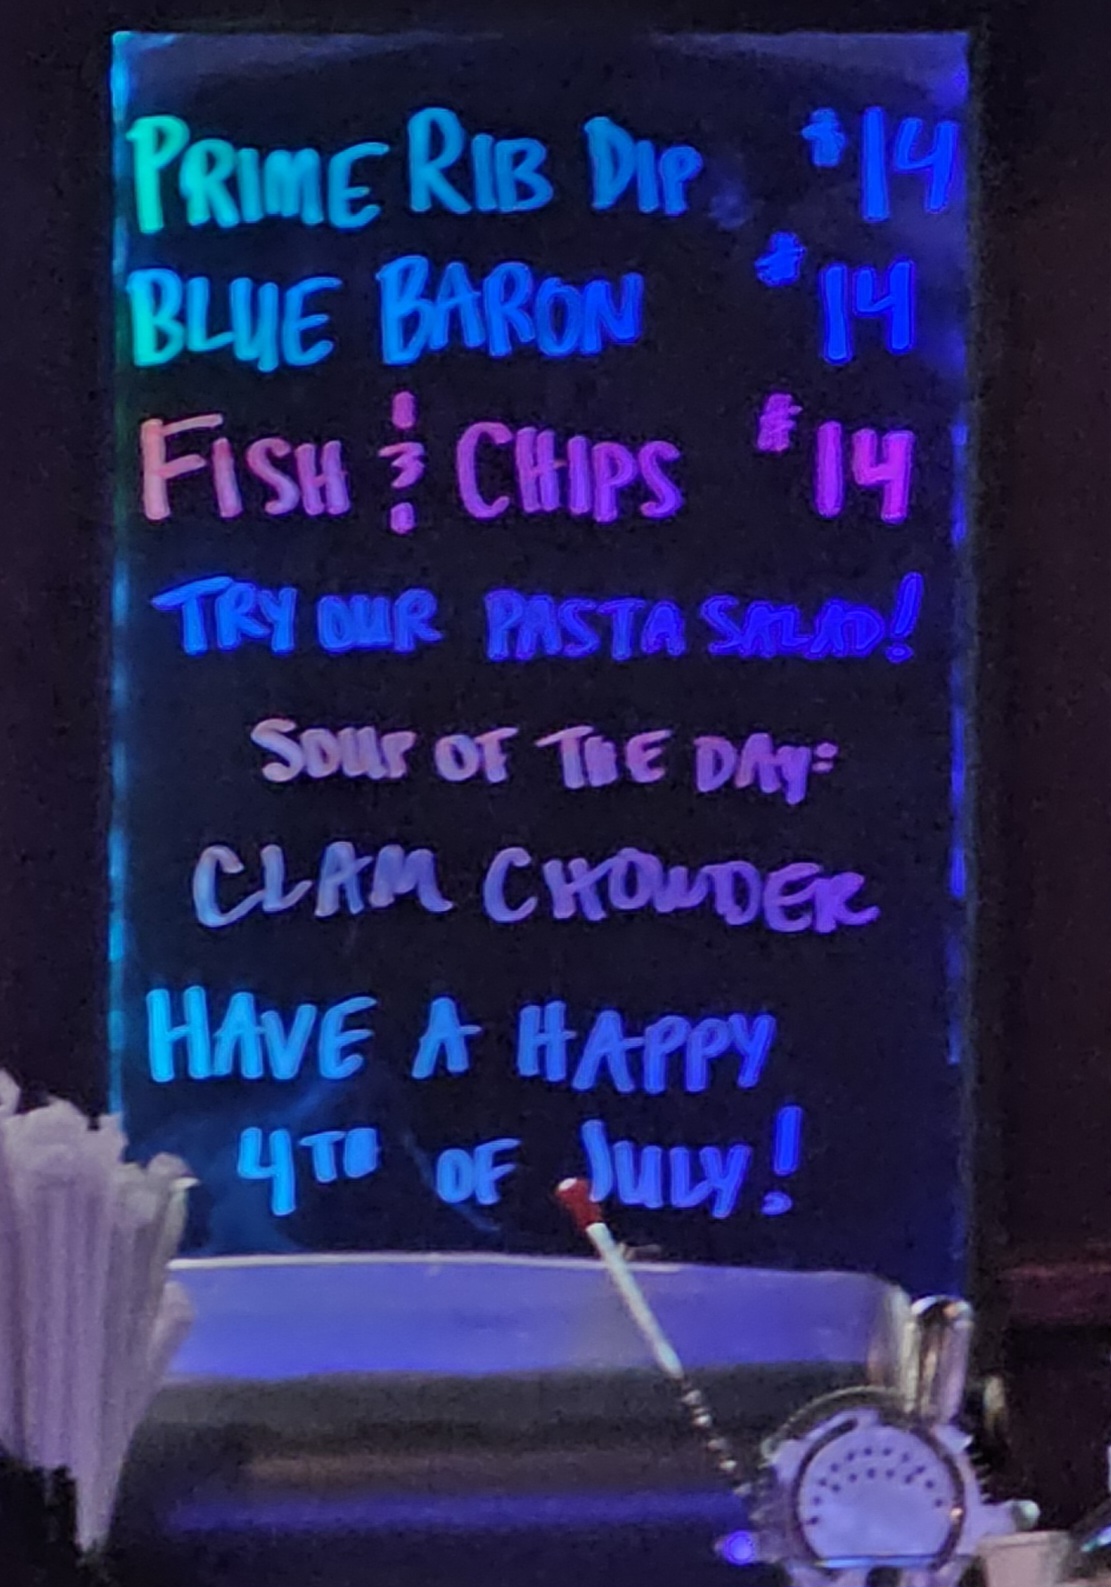 PRIME RIB DIP $14
BLUE BARON $14
FISH & CHIPS $14
TRY OUR PASTA SALAD!
SOUP OF THE DAY:
CLAM CHOWDER
HAVE A HAPPY
4TH OF JULY!